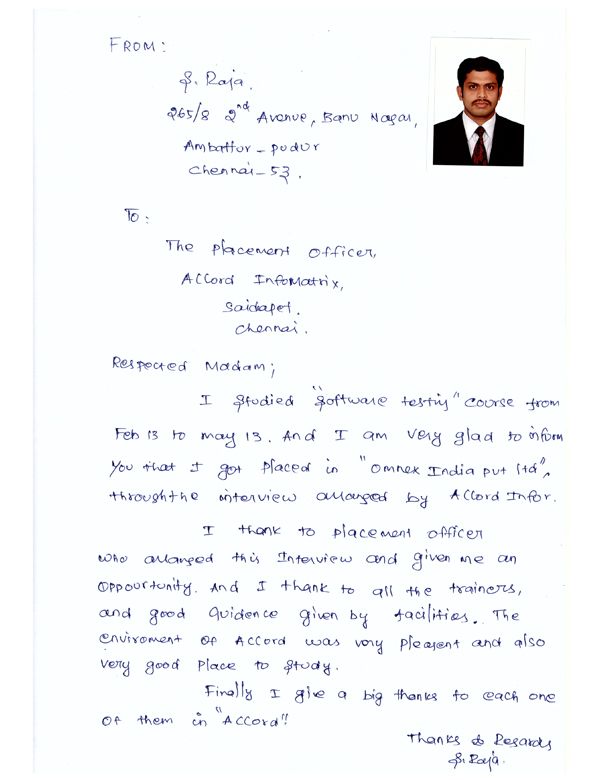 FROM:
S. Raja.
265/8 2nd Avenue, Banu Nagar,
Ambattur - pudur
Chennai - 53.
To:
The Placement Officer,
Accord InfoMatrix,
Saidapet.
Chennai.
Respected Madam;
I Studied "Software testing" course from
Feb 13 to may 13. And I am very glad to inform
You that I got placed in "Omnex India pvt ltd",
throughthe interview arranged by Accord Infor.
I thank to placement officer
who arranged this Interview and given me an
oppourtunity. And I thank to all the trainers,
and good Guidence given by facilities. The
enviroment of Accord was very pleasent and also
very good place to study.
Finally I give a big thanks to each one
of them in "Accord"!
Thanks & Regards
S. Raja.